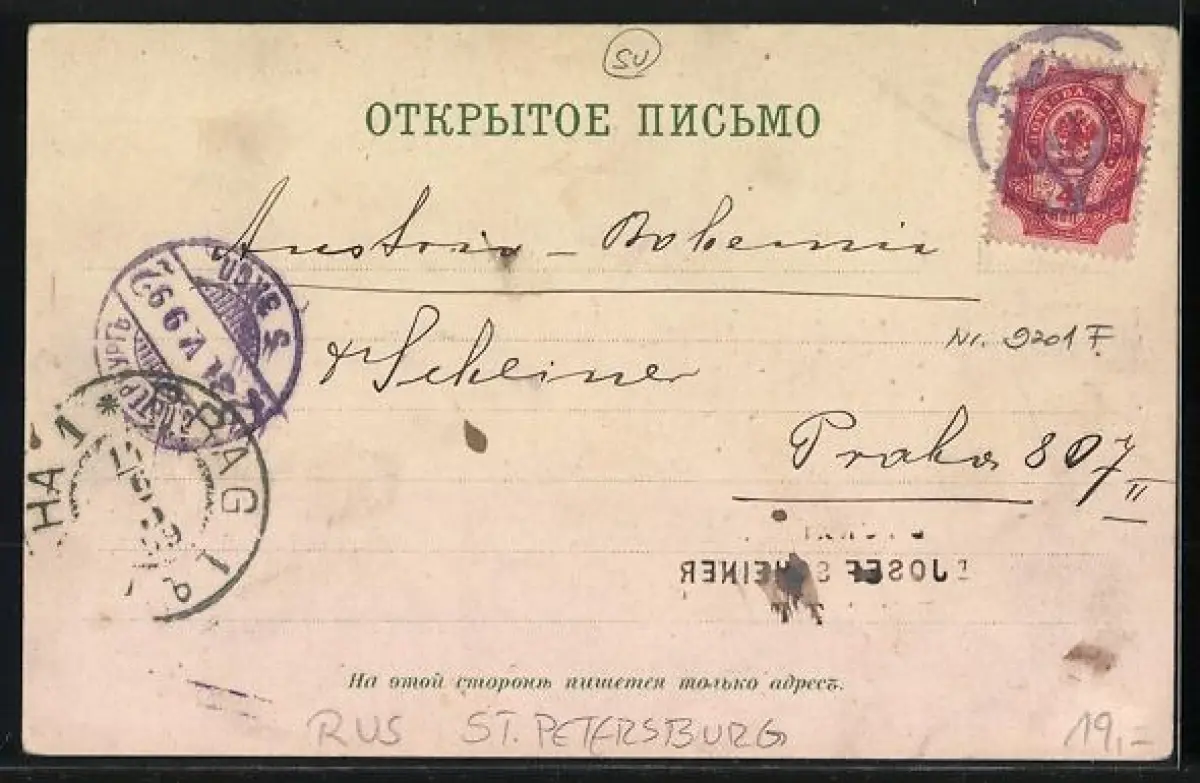 SU
ОТКРЫТОЕ ПИСЬМО
Austria - Bohemia
Nr. 9201 F.
Dr Scheiner
Praha 807
II
PRAG 1
JOSEF SCHEINER
На этой сторонѣ пишется только адресъ.
RUS ST. PETERSBURG
19,-